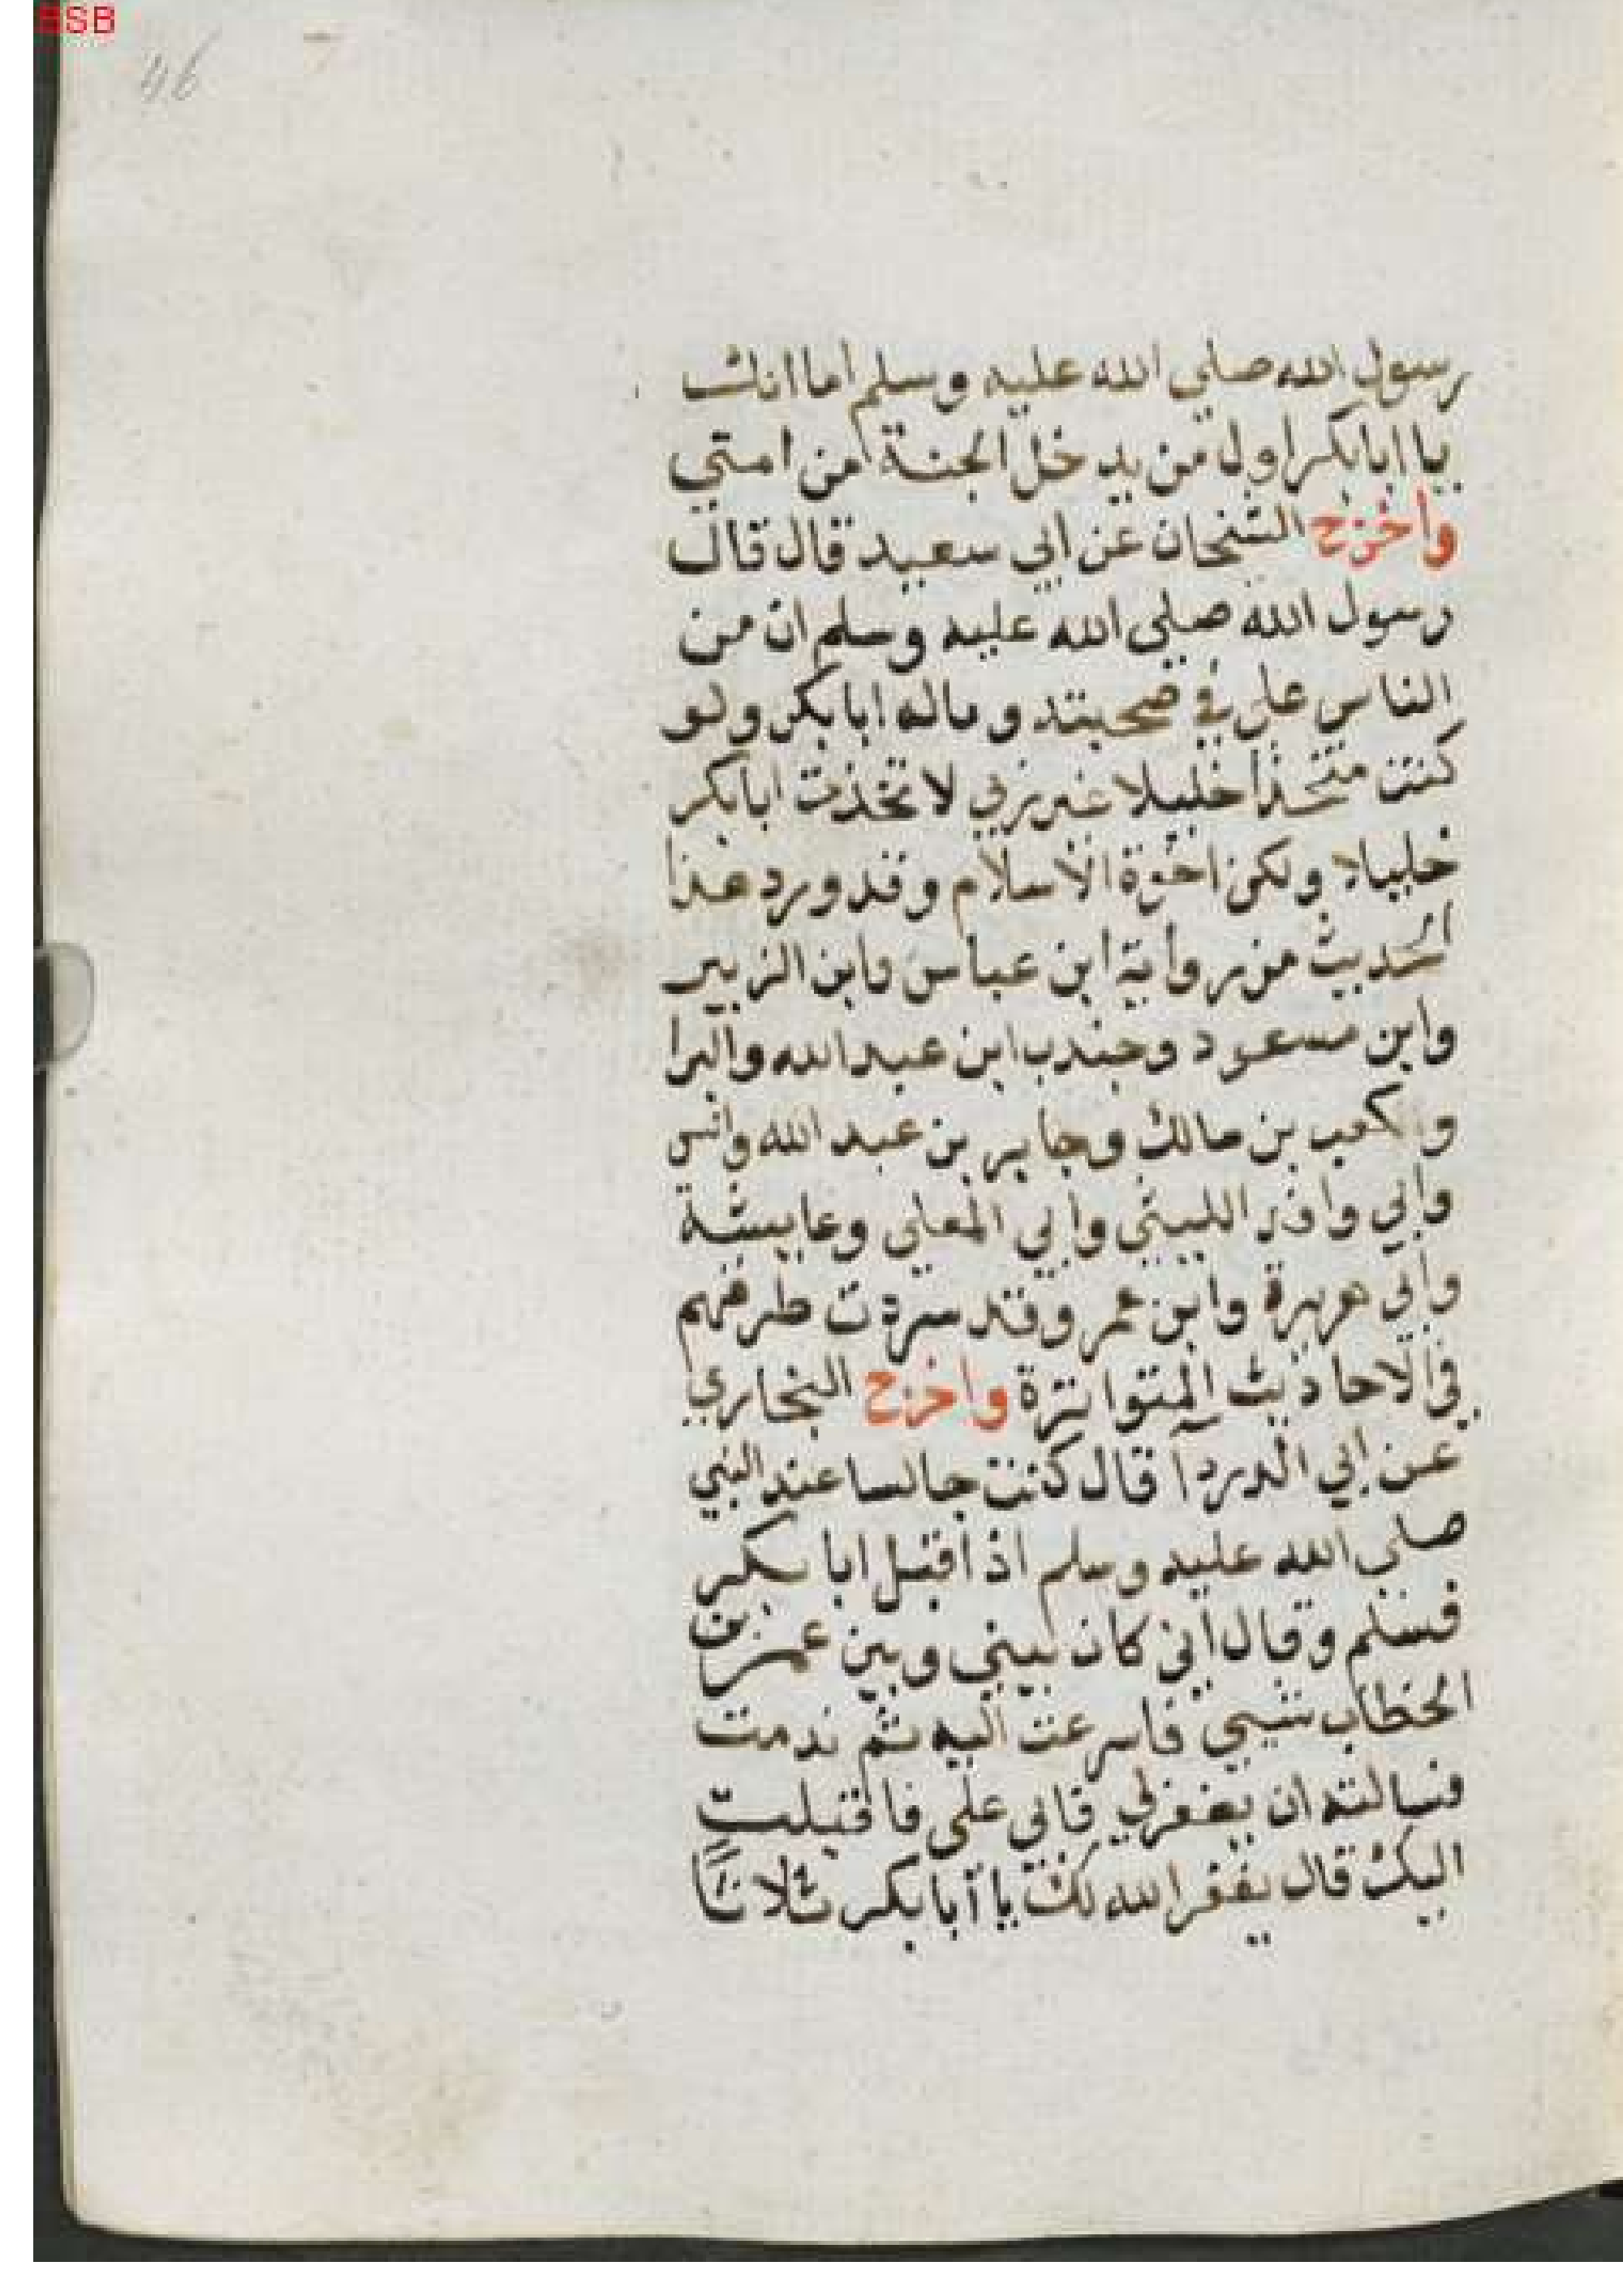 BSB
46
رسول الله صلي الله عليه وسلم اما انك
يا ابا بكر اول من يدخل الجنة من امتي
واخرج الشيخان عن ابي سعيد قال قال
رسول الله صلي الله عليه وسلم ان من
الناس علي في صحبته وماله ابا بكر ولو
كنت متخذا خليلا غير ربي لا تخذت ابا بكر
خليلا ولكن اخوة الاسلام وقد ورد هذا
الحديث من رواية ابن عباس وابن الزبير
وابن مسعود وجندب ابن عبد الله والبرا
وكعب بن مالك وجابر بن عبد الله وانس
وابي واقد الليثي وابي المعلي وعايشة
وابي هريرة وابن عمر وقد سردت طرقهم
في الاحاديث المتواترة واخرج البخاري
عن ابي الدردآ قال كنت جالسا عند النبي
صلي الله عليه وسلم اذ اقبل ابا بكر
فسلم وقال اني كان بيني وبين عمر بن
الخطاب شيي فاسرعت اليه ثم ندمت
فسالته ان يغفر لي فابي علي فاقبلت
اليك قال يغفر الله لك يا أبا بكر ثلاثًا